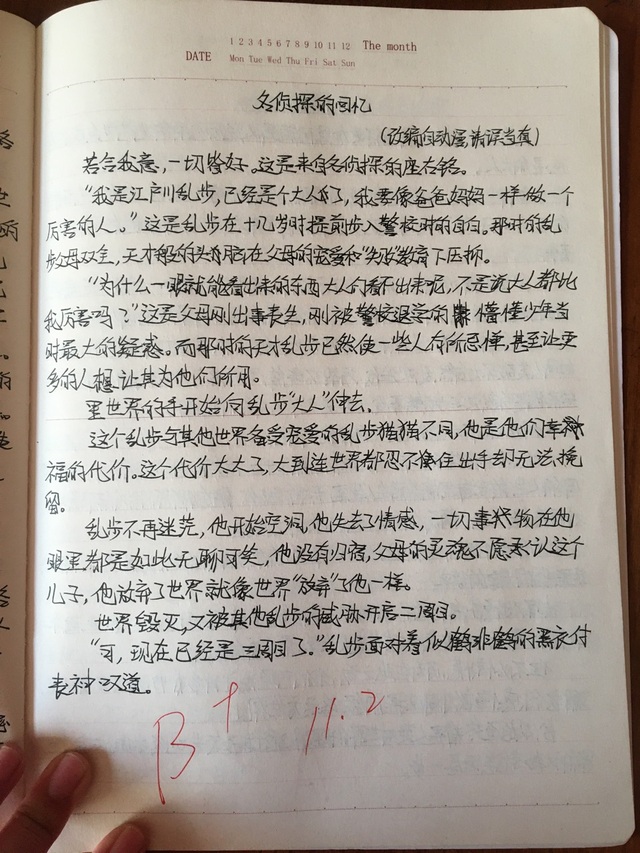 1 2 3 4 5 6 7 8 9 10 11 12 The month
DATE Mon Tue Wed Thu Fri Sat Sun
名侦探的回忆
(改编自动漫,请误当真)
若合我意,一切皆好。这是来自名侦探的座右铭。
“我是江户川乱步,已经是个大人了,我要像爸爸妈妈一样做一个
厉害的人。”这是乱步在十几岁时提前步入警校时的自白。那时的乱
步父母双全,天才般的头脑在父母的宠爱和“失败”教育下压抑。
“为什么一眼就能看出来的东西大人们看不出来呢,不是说大人都比
我厉害吗?”这是父母刚出事丧生,刚被警校退学的懵懂少年当
时最大的疑惑。而那时的天才乱步已然使一些人有所忌惮,甚至让更
多的人想让其为他们所用。
里世界的手开始向乱步“大人”伸去.
这个乱步与其他世界备受宠爱的乱步猫猫不同,他是他们幸
福的代价。这个代价太大了,大到连世界都忍不住出手却无法挽
留。
乱步不再迷茫,他开始空洞,他失去了情感,一切事物在他
眼里都是如此无聊可笑,他没有归宿,父母的灵魂不愿承认这个
儿子,他放弃了世界就像世界“放弃”了他一样。
世界毁灭,又被其他乱步的威胁开启二周目。
“可,现在已经是三周目了。”乱步面对着似鹤非鹤的黑衣付
丧神汉道。
B+ 11.2